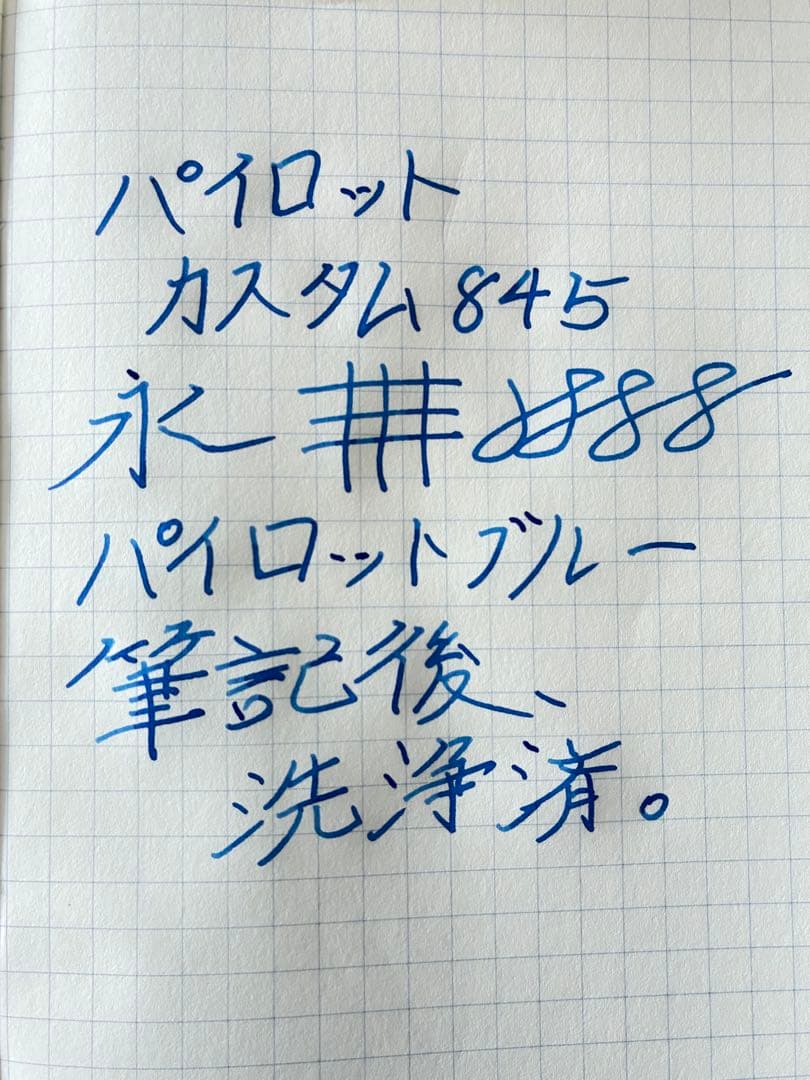 パイロット
カスタム845
永
パイロットブルー
筆記後、
洗浄済。